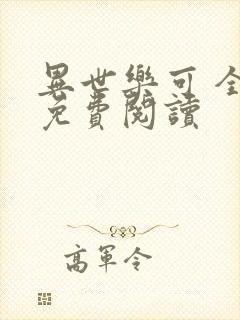 異世樂可全
免費閱讀
高軍令